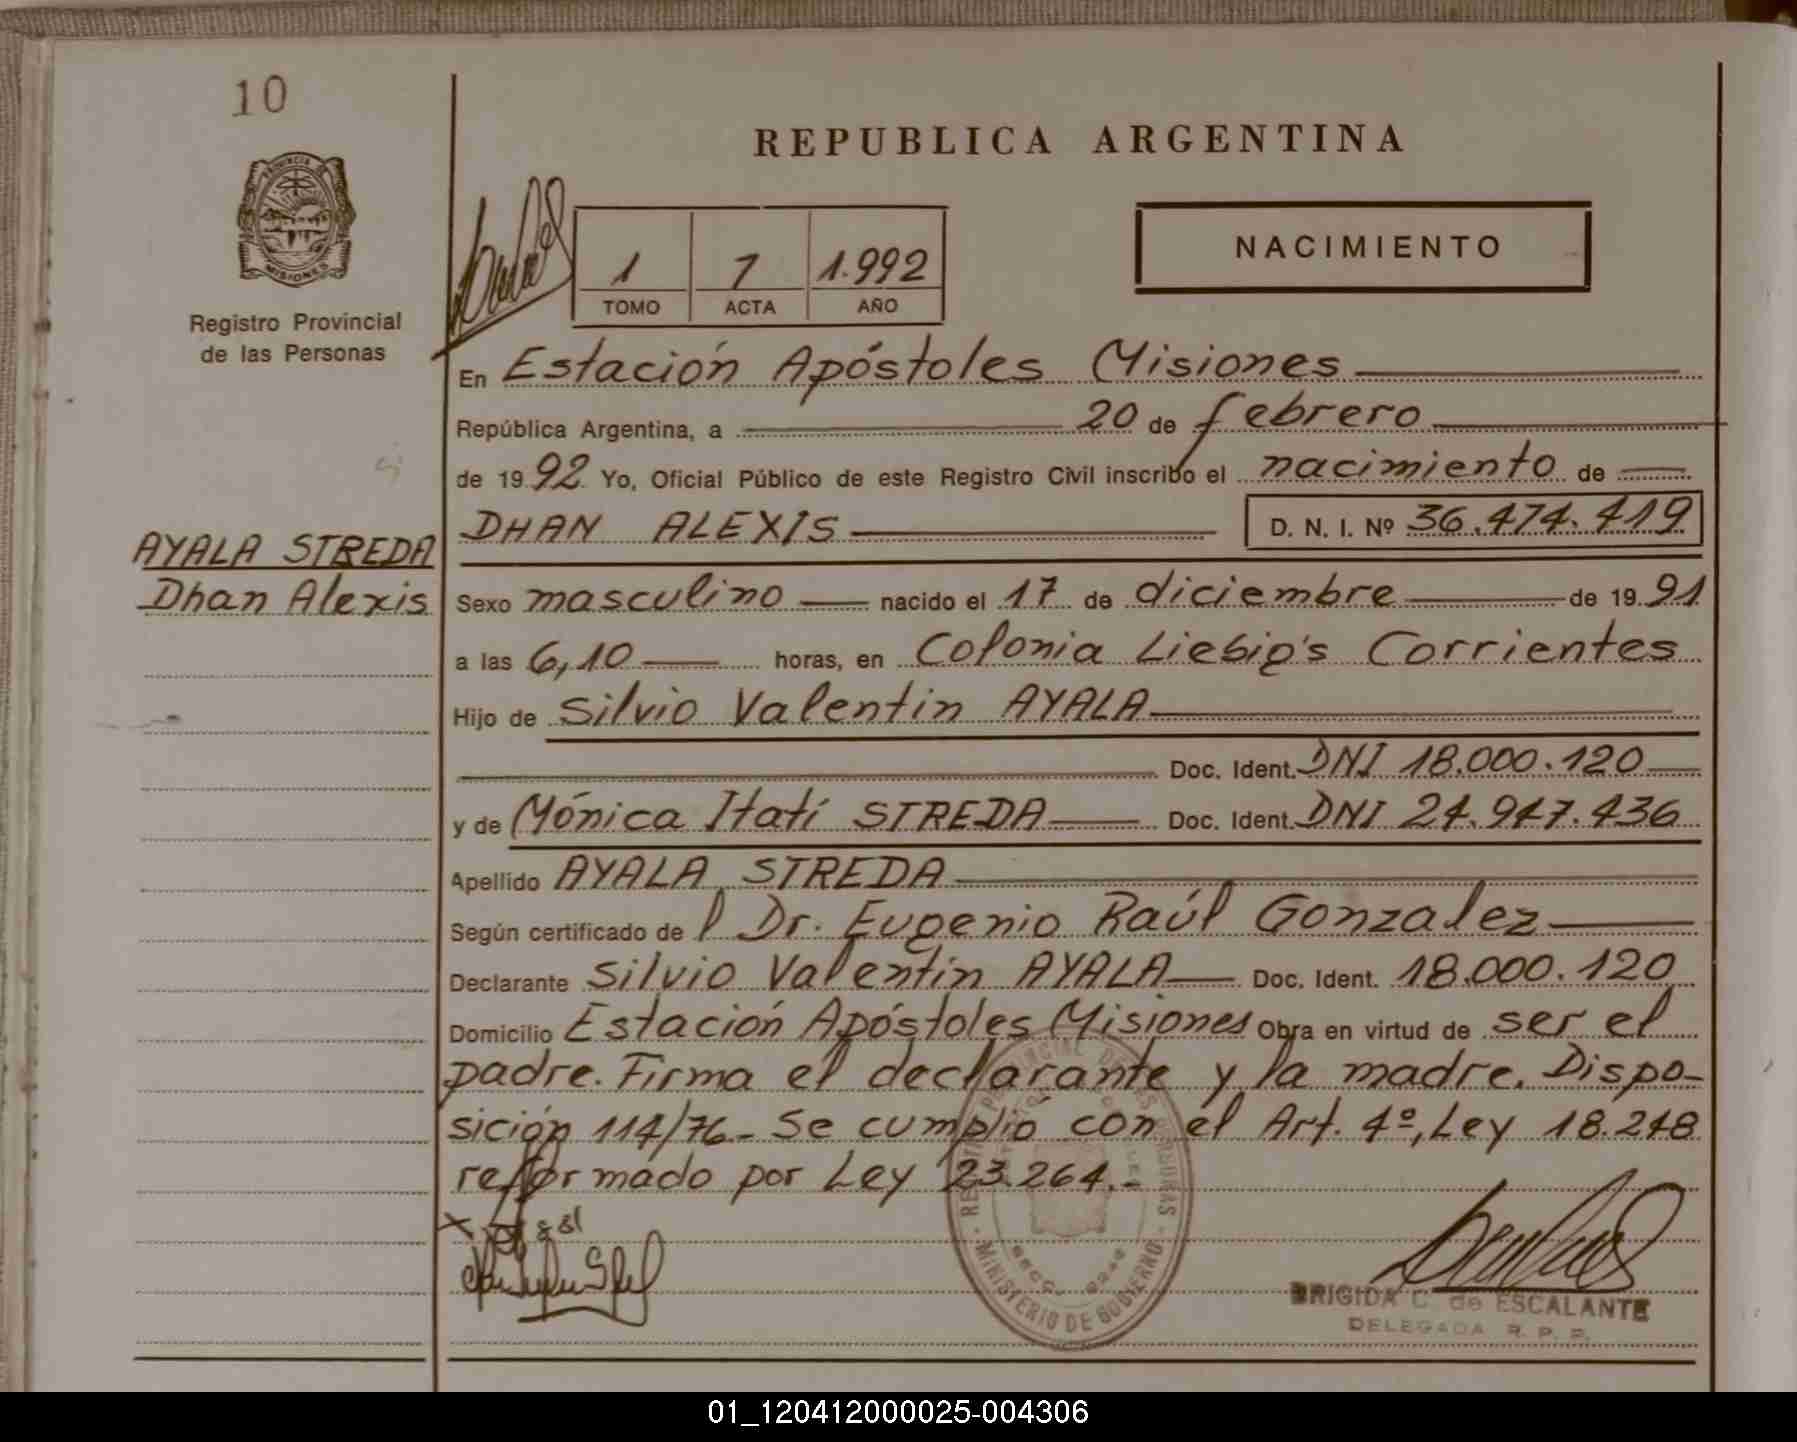 10
PROVINCIA
MISIONES
Registro Provincial
de las Personas
REPUBLICA ARGENTINA
NACIMIENTO
1 7 1.992
TOMO ACTA AÑO
En Estación Apóstoles Misiones
República Argentina, a 20 de febrero
de 19 92 Yo, Oficial Público de este Registro Civil inscribo el nacimiento de
DHAN ALEXIS D. N. I. Nº 36.474.419
AYALA STREDA
Dhan Alexis
Sexo masculino nacido el 17 de diciembre de 19 91
a las 6,10 horas, en Colonia Liebig's Corrientes
Hijo de Silvio Valentin AYALA
Doc. Ident. DNI 18.000.120
y de Mónica Itatí STREDA Doc. Ident. DNI 24.947.436
Apellido AYALA STREDA
Según certificado de l Dr. Eugenio Raúl Gonzalez
Declarante Silvio Valentin AYALA Doc. Ident. 18.000.120
Domicilio Estación Apóstoles Misiones Obra en virtud de ser el
padre. Firma el declarante y la madre. Dispo-
sición 114/76- Se cumplio con el Art. 4º, Ley 18.248
reformado por Ley 23.264.-
MINISTERIO DE GOBIERNO
BRIGIDA C. de ESCALANTE
DELEGADA R. P. P.
01_120412000025-004306